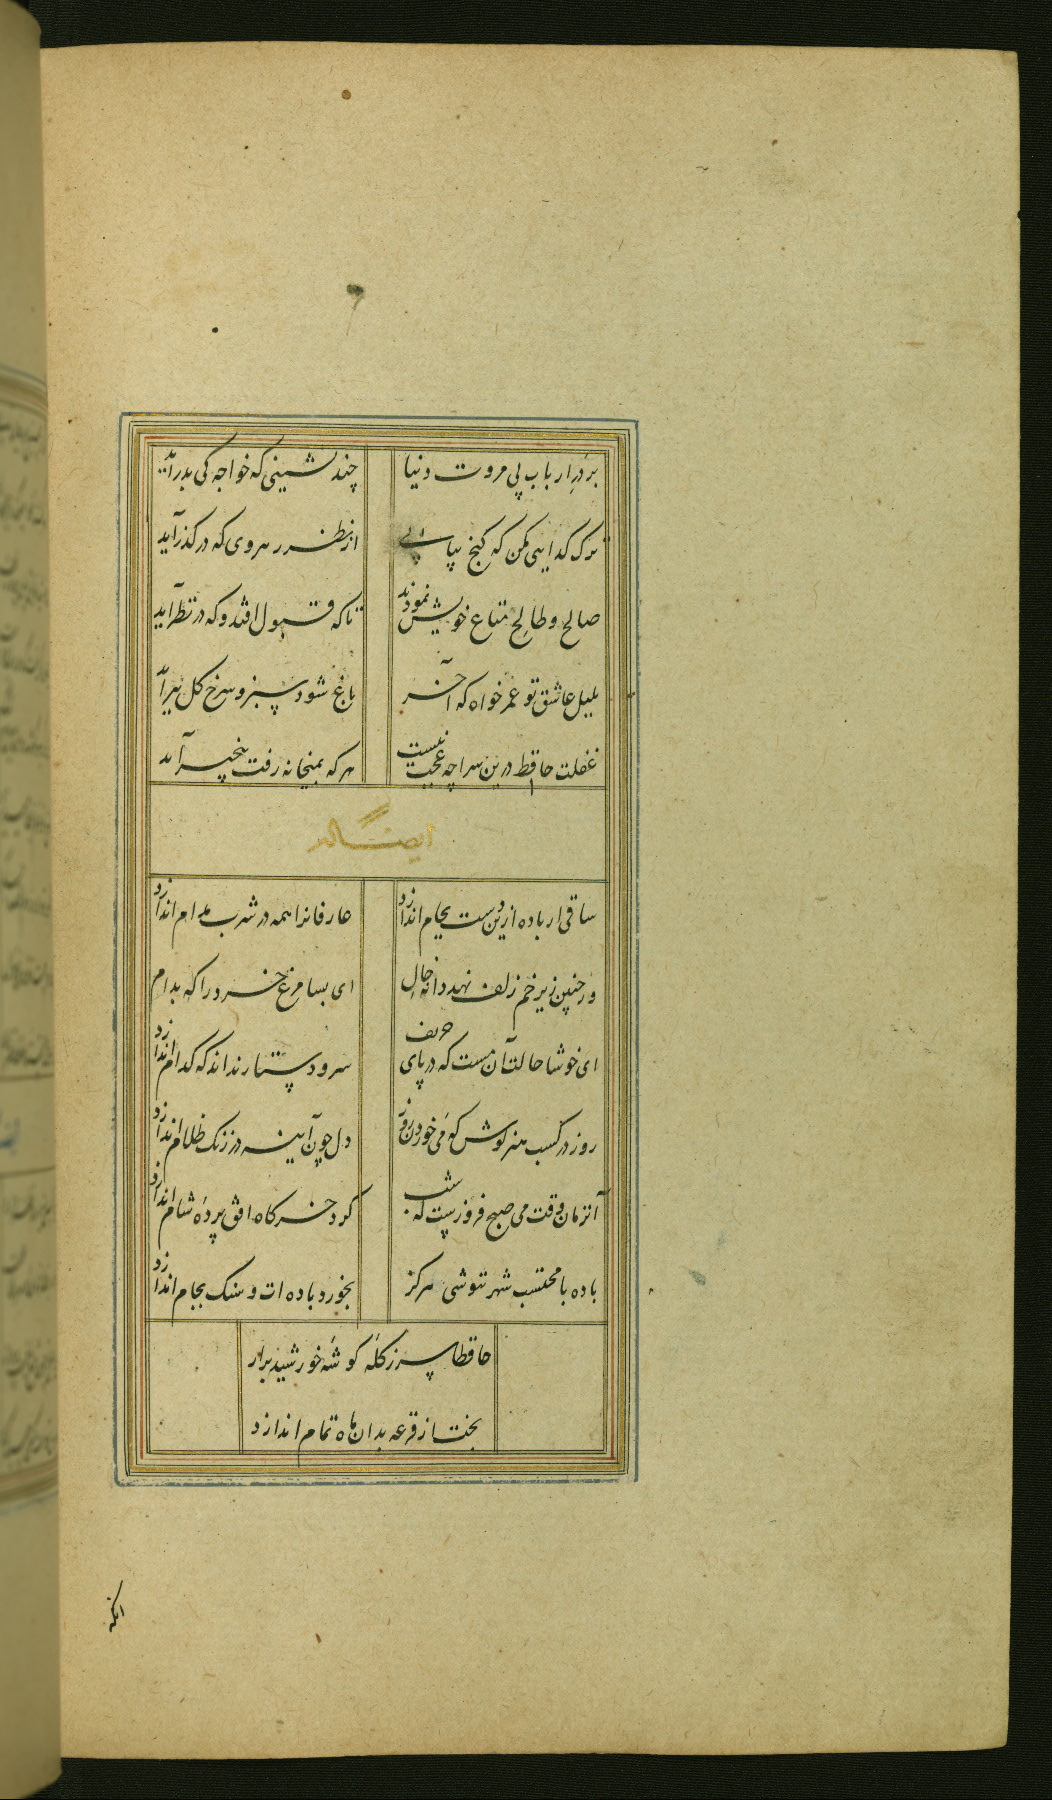 بر در ارباب بی مروت دنیا
چند نشینی که خواجه کی بدر آید
ترک کدایی مکن که کنج بیابی
از نظر رهروی که در کذر آید
صالح و طالح متاع خویش نمودند
تا که قبول افتد و که در نظر آید
بلبل عاشق تو عمر خواه که آخر
باغ شود سبز و سرخ کل ببر آید
غفلت حافظ درین سراچه عجب نیست
هر که بمیخانه رفت بیخبر آید
ایضاله
ساقی ار باده ازین دست بجام اندازد
عارفانرا همه در شرب مدام اندازد
ور چنین زیر خم زلف نهد دانه خال
ای بسا مرغ خرد را که بدام
ای خوشا حالت آن مست که در پای حریف
سر و دستار نداند که کدام اندازد
روز در کسب هنر کوش که می خوردن روز
دل چون آینه در زنک ظلام اندازد
آنزمان وقت می صبح فروزست که شب
کرد خرکاه افق پرده شام اندازد
باده با محتسب شهر ننوشی هرکز
بخورد باده ات و سنک بجام اندازد
حافظا سر ز کله کوشه خورشید برار
بختت ار قرعه بدان ماه تمام اندازد